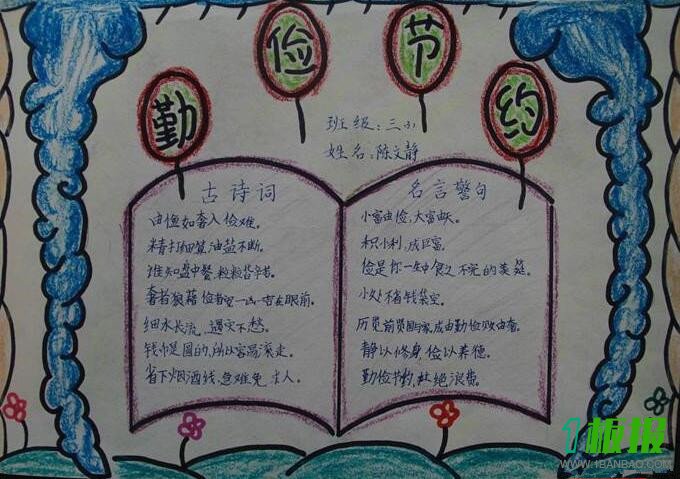 勤俭节约
班级：三(3)
姓名：陈文静
古诗词
由俭如奢入俭难。
精打细算,油盐不断。
谁知盘中餐,粒粒皆辛苦。
奢者狼藉俭者
在眼前。
细水长流,遇灾不愁。
钱币是圆的,所以容易滚走。
省下烟酒钱,急难免求人。
名言警句
小富由俭,大富由天。
积小利,成巨富,
俭是你一生中食之不完的美筵。
小处不省钱袋空。
历览前贤国与家,成由勤俭败由奢。
静以修身,俭以养德。
勤俭节约,杜绝浪费。
1板报
WWW.1BANBAO.COM